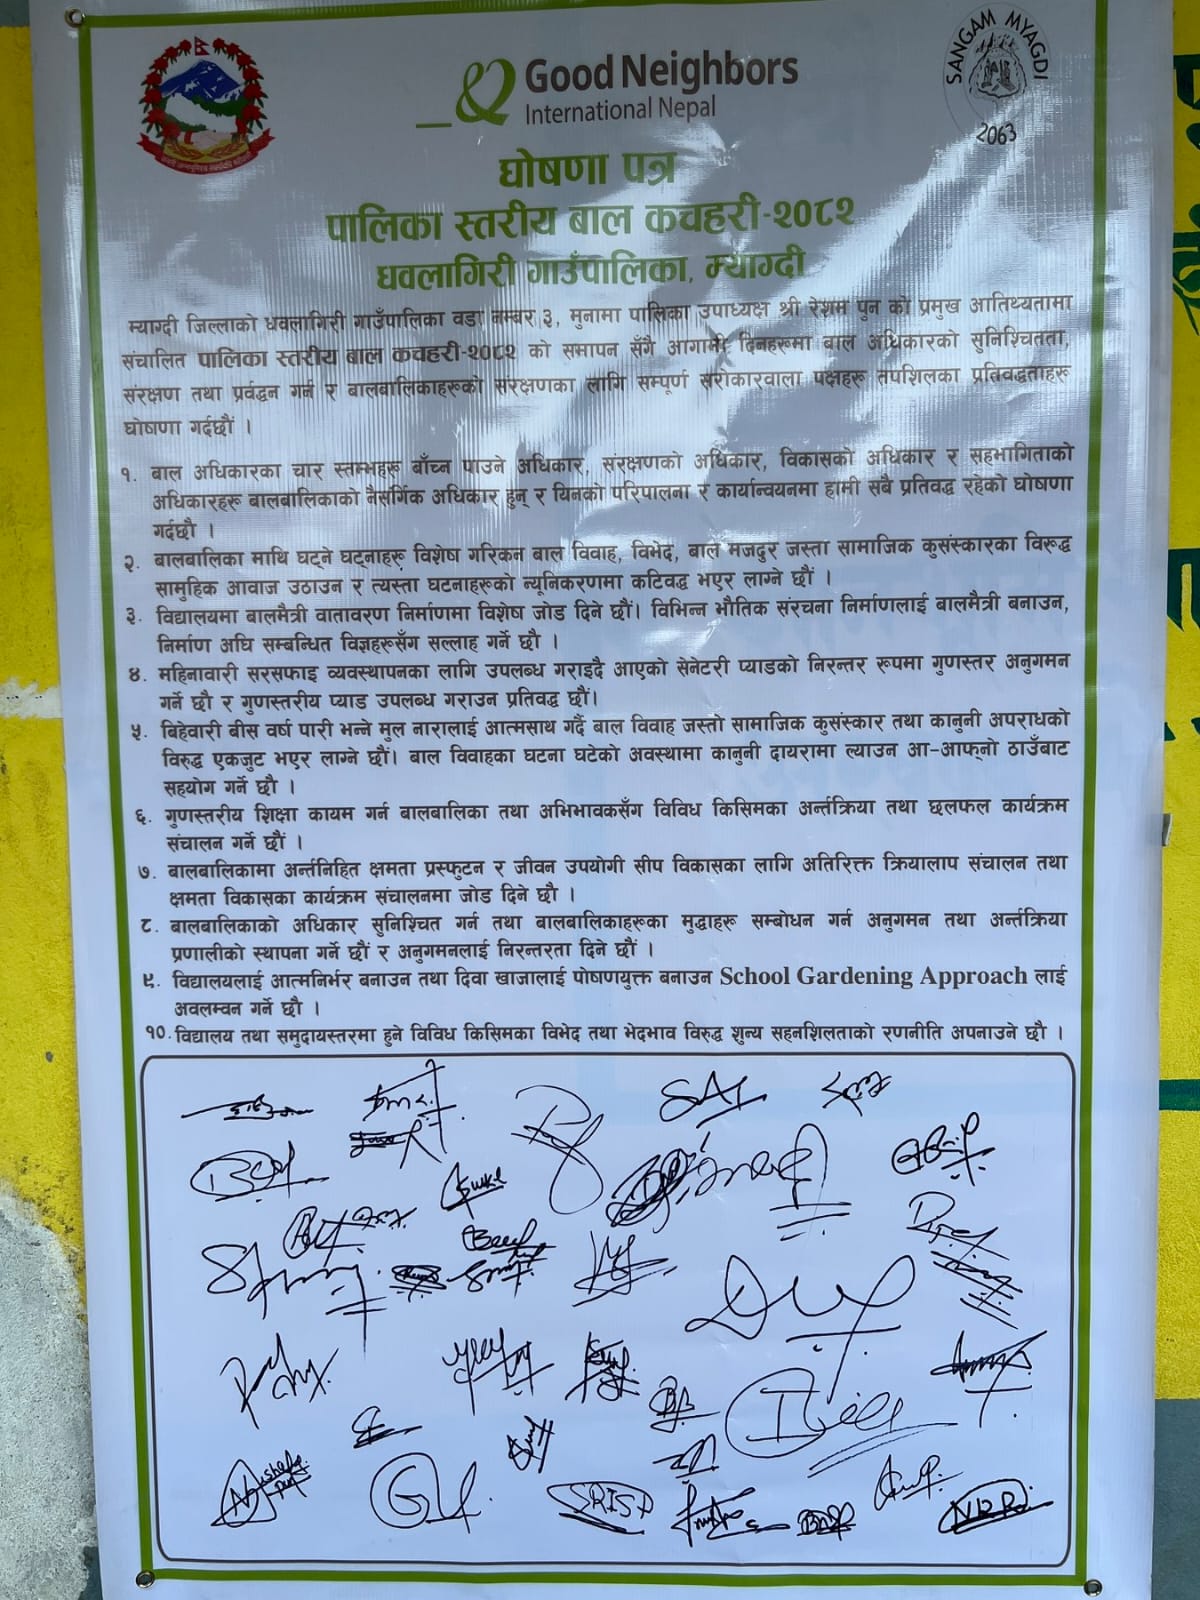 Good Neighbors
International Nepal
SANGAM MYAGDI
2063
घोषणा पत्र
पालिका स्तरीय बाल कचहरी-२०८२
धवलागिरी गाउँपालिका, म्याग्दी
म्याग्दी जिल्लाको धवलागिरी गाउँपालिका वडा नम्बर ३, मुनामा पालिका उपाध्यक्ष श्री रेशम पुन को प्रमुख आतिथ्यतामा
संचालित पालिका स्तरीय बाल कचहरी-२०८२ को समापन सँगै आगामी दिनहरूमा बाल अधिकारको सुनिश्चितता,
संरक्षण तथा प्रर्वद्धन गर्न र बालबालिकाहरूको संरक्षणका लागि सम्पूर्ण सरोकारवाला पक्षहरू तपशिलका प्रतिवद्धताहरू
घोषणा गर्दछौं ।
१. बाल अधिकारका चार स्तम्भहरू बाँच्न पाउने अधिकार, संरक्षणको अधिकार, विकासको अधिकार र सहभागिताको
अधिकारहरू बालबालिकाको नैसर्गिक अधिकार हुन् र यिनको परिपालना र कार्यान्वयनमा हामी सबै प्रतिवद्ध रहेको घोषणा
गर्दछौ ।
२. बालबालिका माथि घट्ने घट्नाहरू विशेष गरिकन बाल विवाह, विभेद, बाल मजदुर जस्ता सामाजिक कुसंस्कारका विरूद्ध
सामुहिक आवाज उठाउन र त्यस्ता घटनाहरूको न्यूनिकरणमा कटिवद्ध भएर लाग्ने छौं ।
३. विद्यालयमा बालमैत्री वातावरण निर्माणमा विशेष जोड दिने छौं। विभिन्न भौतिक संरचना निर्माणलाई बालमैत्री बनाउन,
निर्माण अघि सम्बन्धित विज्ञहरूसँग सल्लाह गर्ने छौ ।
४. महिनावारी सरसफाइ व्यवस्थापनका लागि उपलब्ध गराइदै आएको सेनेटरी प्याडको निरन्तर रूपमा गुणस्तर अनुगमन
गर्ने छौ र गुणस्तरीय प्याड उपलब्ध गराउन प्रतिवद्ध छौं।
५. बिहेवारी बीस वर्ष पारी भन्ने मुल नारालाई आत्मसाथ गर्दै बाल विवाह जस्तो सामाजिक कुसंस्कार तथा कानुनी अपराधको
विरुद्ध एकजुट भएर लाग्ने छौं। बाल विवाहका घटना घटेको अवस्थामा कानुनी दायरामा ल्याउन आ-आफ्नो ठाउँबाट
सहयोग गर्ने छौ ।
६. गुणस्तरीय शिक्षा कायम गर्न बालबालिका तथा अभिभावकसँग विविध किसिमका अर्न्तक्रिया तथा छलफल कार्यक्रम
संचालन गर्ने छौं ।
७. बालबालिकामा अर्न्तनिहित क्षमता प्रस्फुटन र जीवन उपयोगी सीप विकासका लागि अतिरिक्त क्रियालाप संचालन तथा
क्षमता विकासका कार्यक्रम संचालनमा जोड दिने छौ ।
८. बालबालिकाको अधिकार सुनिश्चित गर्न तथा बालबालिकाहरूका मुद्धाहरू सम्बोधन गर्न अनुगमन तथा अर्न्तक्रिया
प्रणालीको स्थापना गर्ने छौं र अनुगमनलाई निरन्तरता दिने छौं ।
९. विद्यालयलाई आत्मनिर्भर बनाउन तथा दिवा खाजालाई पोषणयुक्त बनाउन School Gardening Approach लाई
अवलम्वन गर्ने छौ ।
१०. विद्यालय तथा समुदायस्तरमा हुने विविध किसिमका विभेद तथा भेदभाव विरुद्ध शुन्य सहनशिलताको रणनीति अपनाउने छौ ।